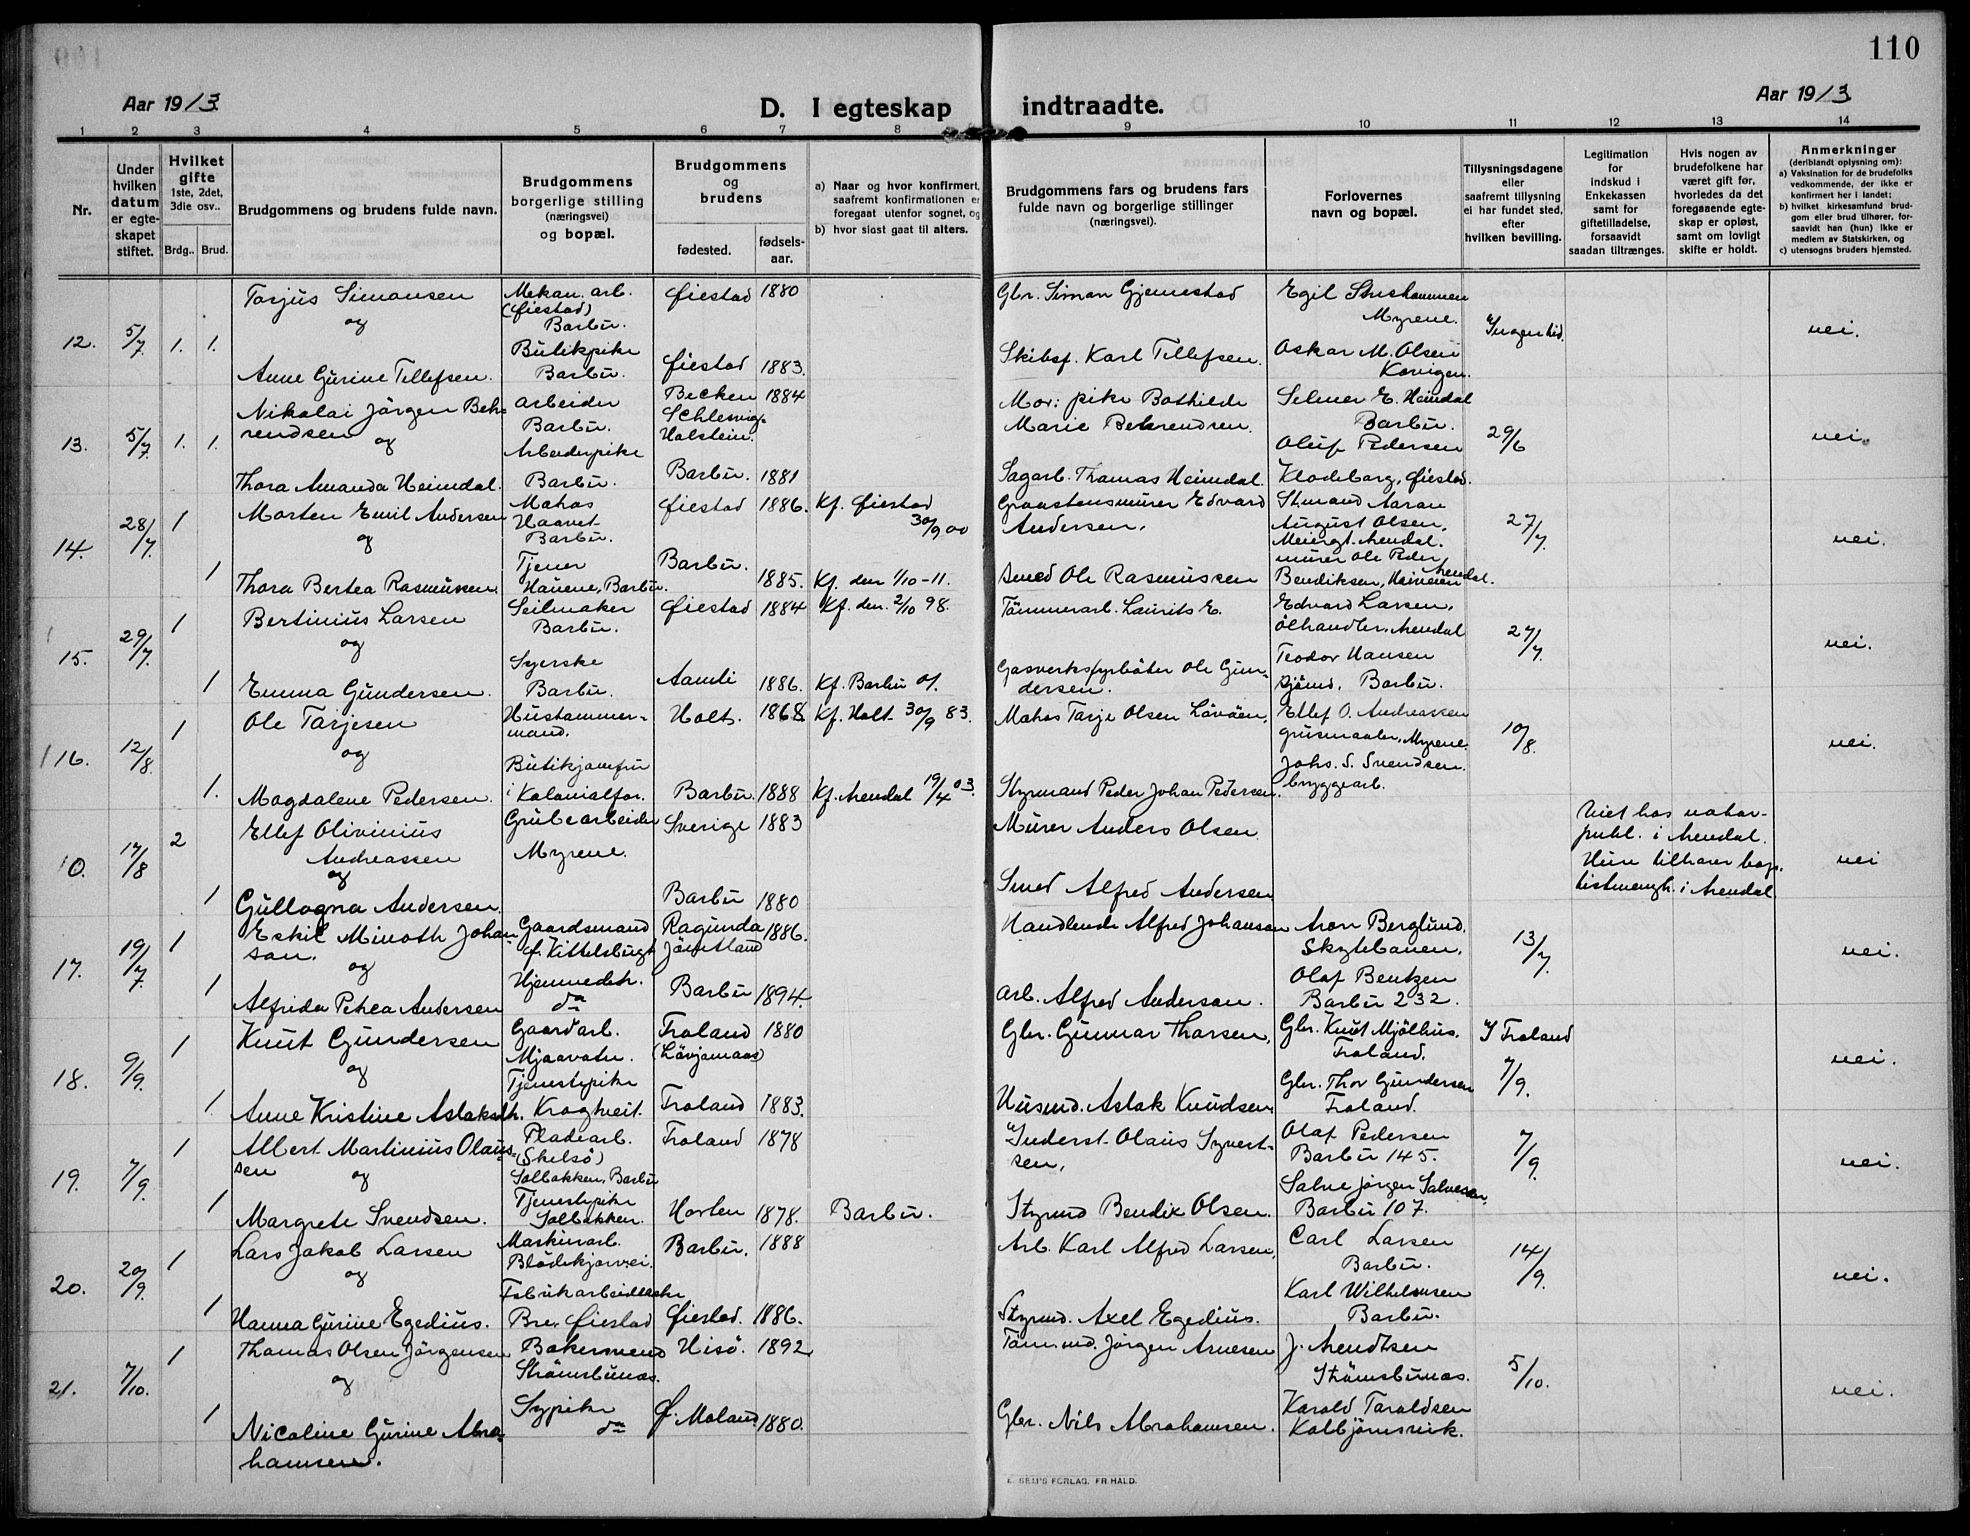 110
Aar 1913.
D. I egteskap indtraadte.
Aar 1913
1 2 3 4 5 6 7 8 9 10 11 12 13 14
Nr.
Under hvilken datum er egteskapet stiftet.
Hvilket gifte 1ste, 2det, 3die osv.. Brdg.. Brud.
Brudgommens og brudens fulde navn.
Brudgommens borgerlige stilling (næringsvei) og bopæl.
Brudgommens og brudens fødested. fødselsaar.
a) Naar og hvor konfirmert, saafremt konfirmationen er foregaat utenfor sognet, og
b) hvor sidst gaat til alters.
Brudgommens fars og brudens fars fulde navn og borgerlige stillinger (næringsvei).
Forlovernes navn og bopæl.
Tillysningsdagene eller saafremt tillysning ei har fundet sted, efter hvilken bevilling.
Legitimation for indskud i Enkekassen samt for giftetilladelse, forsaavidt saadan tiltrænges.
Hvis nogen av brudefolkene har været gift før, hvorledes da det foregaaende egteskap er opløst, samt om lovligt skifte er holdt.
Anmerkninger (deriblandt oplysning om):
a) Vaksination for de brudefolks vedkommende, der ikke er konfirmert her i landet;
b) hvilket kirkesamfund brudgom eller brud tilhører, forsaavidt han (hun) ikke er medlem av Statskirken, og
c) utensogns bruders hjemsted.
12. 5/7 1. 1. Torjus Simonsen og Mekan. arb. (Øiestad) Barbu. Øiestad 1880 Gbr. Simon Gjennestad Egil Myrene. nei.
Anne Gurine Tellefsen. Butikpike Barbu. Øiestad 1883. Skibsf. Karl Tellefsen. Oskar M. Olsen
13. 5/7 1. 1. Nikolai Jörgen Behrendsen og arbeider Barbu. Becken Schlesvig-Holstein. 1884 Mor: pike Bothilde Marie Behrendsen. Selmer E. Heimdal Barbu. 29/6 nei.
Thora Amanda Heimdal. Arbeiderpike Barbu. Barbu. 1881 Sagarb. Thomas Heimdal. Oluf Pedersen Klodeborg, Øiestad.
14. 28/7 1 Morten Emil Andersen og Matros Haavet Barbu. Øiestad 1886. Kf. Øiestad 30/9 00 Graastensmurer Edvard Andersen. August Olsen. Arendal. 27/7 nei.
1 Thora Bertea Rasmussen. Tjener Barbu. Barbu. 1885. Kf. den 1/10-11. Smed Ole Rasmussen murer Ole Peder Bendiksen, Arendal.
15. 29/7 1 Bertinius Larsen og Seilmaker Barbu. Øiestad 1884 Kf. den 2/10 98. Tömmerarb. Laurits E. Edvard Larsen, ölhandler, Arendal 27/7 nei.
1 Emma Gundersen. Syerske Barbu. Aamli 1886. Kf. Barbu 01. Gasverksfyrböter Ole Gundersen. Teodor Hansen sjömd. Barbu.
16. 12/8. 1 Ole Tarjesen og Hustømmermand. Holt. 1868. Kf. Holt 30/9 83. Matros Tarje Olsen Lövåen, Ellef O. Andreassen Myrene. 10/8. nei.
1. Magdalene Pedersen. Butikjomfru i Kolonialfor. Barbu. 1888 Kf. Arendal 19/4 03. Styrmand Peder Johan Pedersen. Johs. S. Svendsen. bryggearb.
10. 17/8 2 Ellef Olivinius Andreassen og Grubearbeider Myrene. Sverige 1883 Murer Anders Olsen Viet hos notar-publ. i Arendal. nei
1 Gullagna Andersen. Barbu 1880 Smed Alfred Andersen Hun tilhører baptistmengh. i Arendal
17. 19/7. 1 Eskil Minoth Johanson. og Gaardsmand f. Kittelsbugt Ragunda Jämtland 1886. Handlende Alfred Johansson Aron Berglund, Skytebanen. 13/7. nei.
1 Alfrida Petrea Andersen Hjemmedtr. do Barbu 1894. arb. Alfred Anderson. Olaf Bentzen Barbu 232.
18. 9/9. 1 Knut Gundersen og Gaardarb. Mjaavatn. Froland 1880 Gbr. Gunnar Tharsen, Gbr. Knut Mjölhus. Froland. I Froland 7/9. nei.
1. Anne Kristine Aslaksdtr. Tjenestepike Krogtveit. Froland 1883. Husmd. Aslak Knudsen. Gbr. Thor Gundersen Froland.
19. 7/9. 1 Albert Martinius Olaussen og Pladearb. Solbakken, Barbu Froland 1878 Inderst Olaus Syvertsen, Olaf Pedersen Barbu 145. 7/9. nei.
1 Margrete Svendsen. Tjenestepike Solbakken. Horten 1878. Barbu. Styrmd Bendix Olsen. Salve Jörgen Salvesen, Barbu 107.
20. 20/9. 1 Lars Jakob Larsen og Maskinarb. Blödekjærvei. Barbu. 1888 Arb. Karl Alfred Larsen, Carl Larsen Barbu. 14/9. nei.
1 Hanna Gurine Egedius. Fabrikarbeiderske Øiestad Øiestad. 1886. Styrmd. Axel Egedius. Karl Wilhelmsen Barbu.
21. 7/10. 1 Thomas Olsen Jörgensen og Bakersvend Strömsbunæs. Hisö. 1892. Tömmd. Jörgen Arnesen J. Arendtsen Strömsbunæs. 5/10. nei.
1 Nicoline Gurine Abrahamsen. Sypike do Ø. Moland 1880. Gbr. Nils Abrahamsen. Harald Taraldsen Kolbjörnsvik.
E. SEM'S FORLAG. FR. HALD.